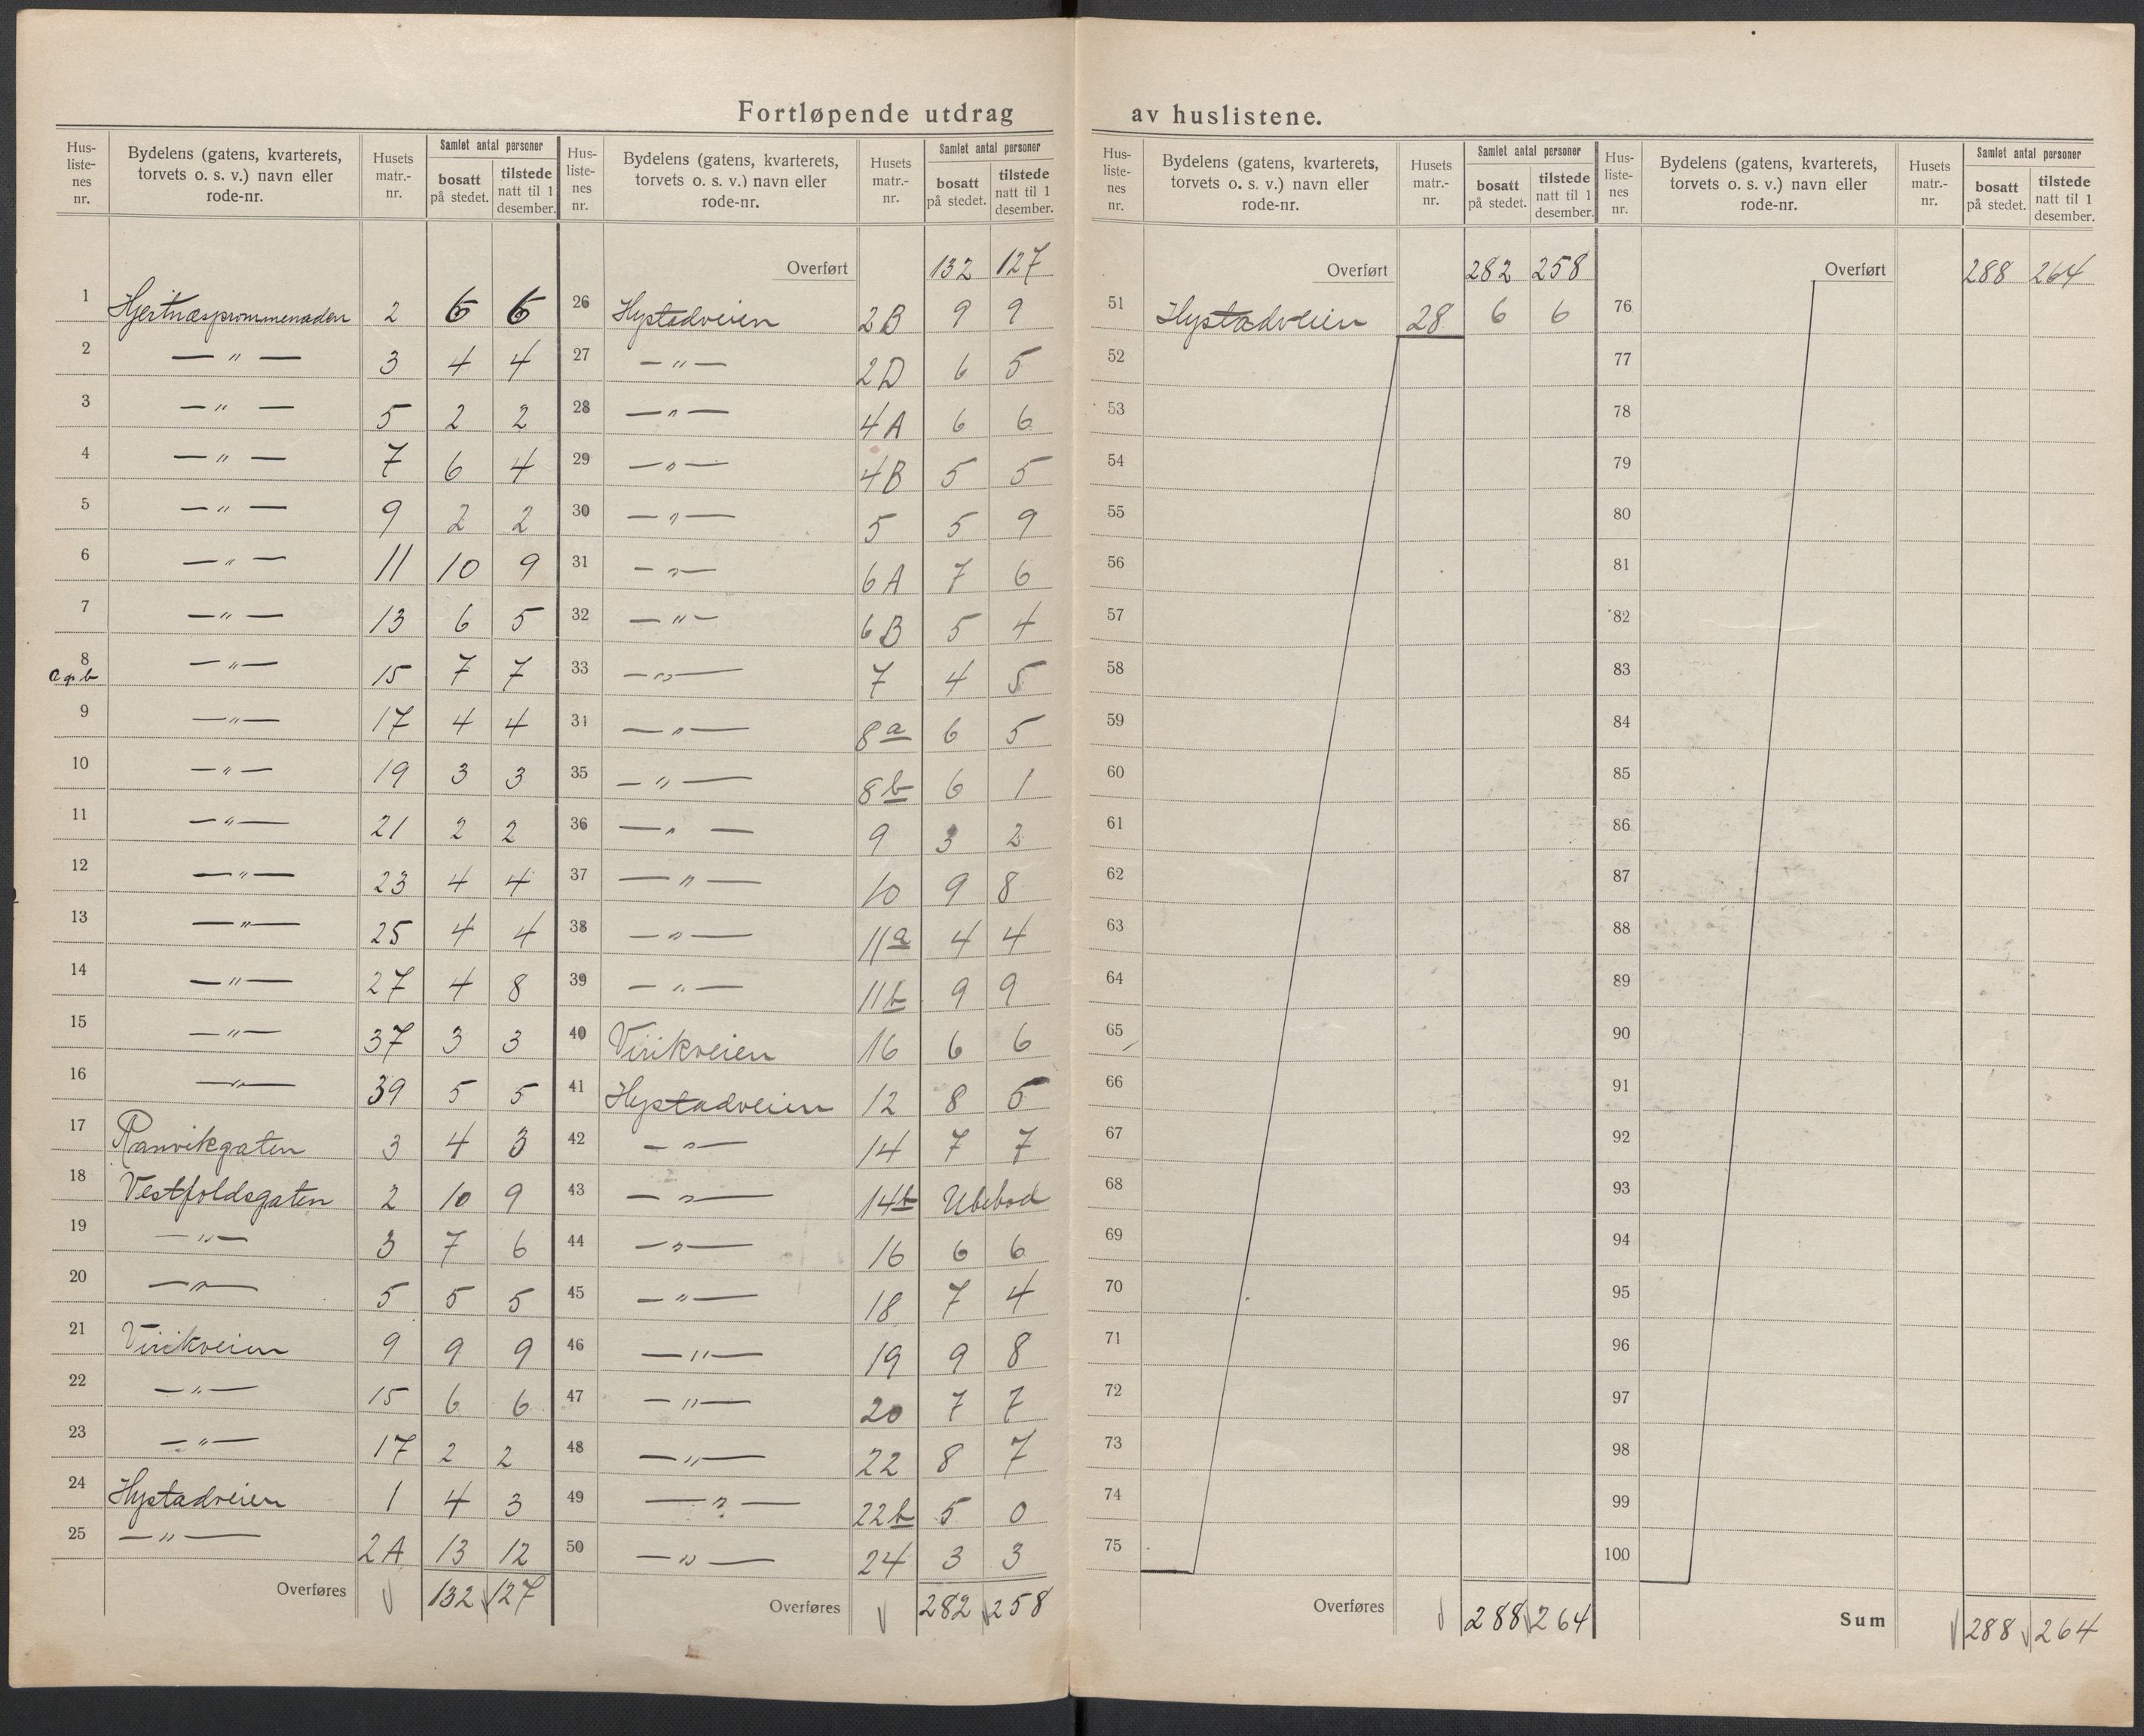 Fortløpende utdrag av huslistene.
Hus-listenes nr. | Bydelens (gatens, kvarterets, torvets o. s. v.) navn eller rode-nr. | Husets matr.-nr. | Samlet antal personer bosatt på stedet. | tilstede natt til 1 desember.
1 Hjertnæspromenaden 2 6 6
2 — " — 3 4 4
3 — " — 5 2 2
4 — " — 7 6 4
5 — " — 9 2 2
6 — " — 11 10 9
7 — " — 13 6 5
8 a og b — " — 15 7 7
9 — " — 17 4 4
10 — " — 19 3 3
11 — " — 21 2 2
12 — " — 23 4 4
13 — " — 25 4 4
14 — " — 27 4 8
15 — " — 37 3 3
16 — " — 39 5 5
17 Ranvikgaten 3 4 3
18 Vestfoldsgaten 2 10 9
19 — " — 3 7 6
20 — " — 5 5 5
21 Virikveien 9 9 9
22 — " — 15 6 6
23 — " — 17 2 2
24 Hystadveien 1 4 3
25 — " — 2A 13 12
Overføres 132 127
Hus-listenes nr. | Bydelens (gatens, kvarterets, torvets o. s. v.) navn eller rode-nr. | Husets matr.-nr. | Samlet antal personer bosatt på stedet. | tilstede natt til 1 desember.
Overført 132 127
26 Hystadveien 2B 9 9
27 — " — 2D 6 5
28 — " — 4A 6 6
29 — " — 4B 5 5
30 — " — 5 5 9
31 — " — 6A 7 6
32 — " — 6B 5 4
33 — " — 7 4 5
34 — " — 8a 6 5
35 — " — 8b 6 1
36 — " — 9 3 2
37 — " — 10 9 8
38 — " — 11a 4 4
39 — " — 11b 9 9
40 Virikveien 16 6 6
41 Hystadveien 12 8 5
42 — " — 14 7 7
43 — " — 14b Ubebod
44 — " — 16 6 6
45 — " — 18 7 4
46 — " — 19 9 8
47 — " — 20 7 7
48 — " — 22 8 7
49 — " — 22b 5 0
50 — " — 24 3 3
Overføres 282 258
Hus-listenes nr. | Bydelens (gatens, kvarterets, torvets o. s. v.) navn eller rode-nr. | Husets matr.-nr. | Samlet antal personer bosatt på stedet. | tilstede natt til 1 desember.
Overført 282 258
51 Hystadveien 28 6 6
52
53
54
55
56
57
58
59
60
61
62
63
64
65
66
67
68
69
70
71
72
73
74
75
Overføres 288 264
Hus-listenes nr. | Bydelens (gatens, kvarterets, torvets o. s. v.) navn eller rode-nr. | Husets matr.-nr. | Samlet antal personer bosatt på stedet. | tilstede natt til 1 desember.
Overført 288 264
76
77
78
79
80
81
82
83
84
85
86
87
88
89
90
91
92
93
94
95
96
97
98
99
100
Sum 288 264